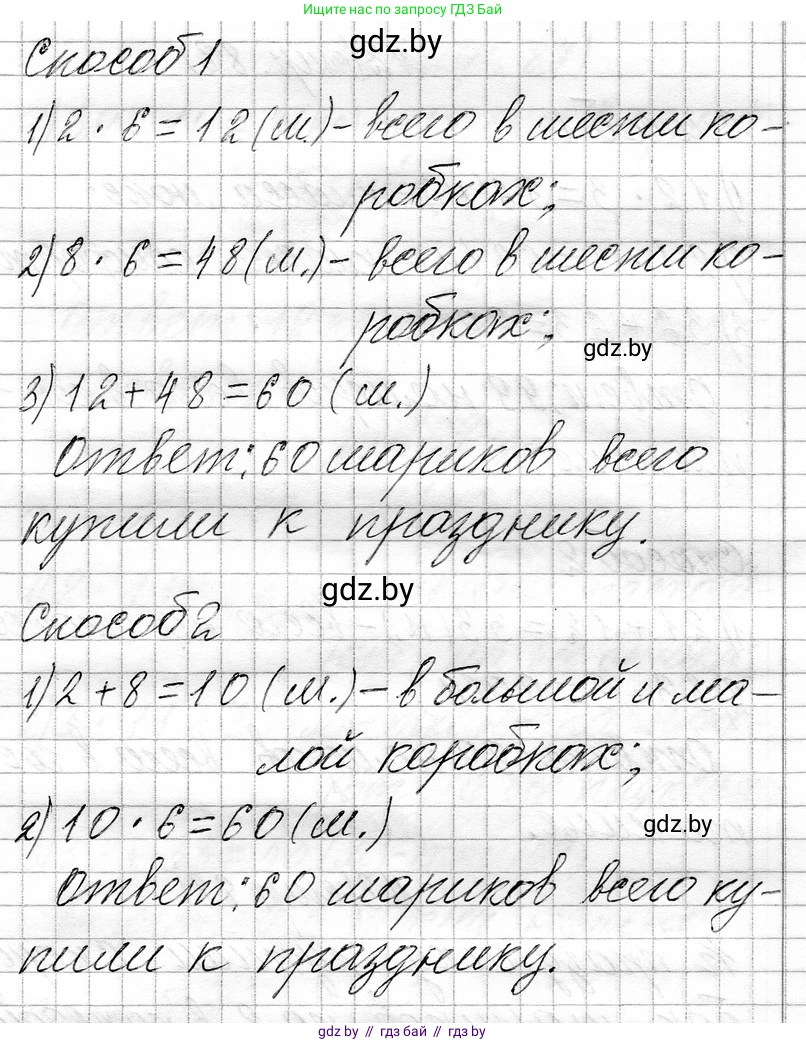 Ищите нас по запросу ГДЗ Бай
gdz.by
Способ 1
1) 2 · 6 = 12 (ш.) – всего в шести ко-
робках;
2) 8 · 6 = 48 (ш.) – всего в шести ко-
робках;
gdz.by
3) 12 + 48 = 60 (ш.)
Ответ: 60 шариков всего
купили к празднику.
gdz.by
Способ 2
1) 2 + 8 = 10 (ш.) – в большой и ма-
лой коробках;
2) 10 · 6 = 60 (ш.)
gdz.by
Ответ: 60 шариков всего ку-
пили к празднику.
gdz.by // гдз бай // gdz.by